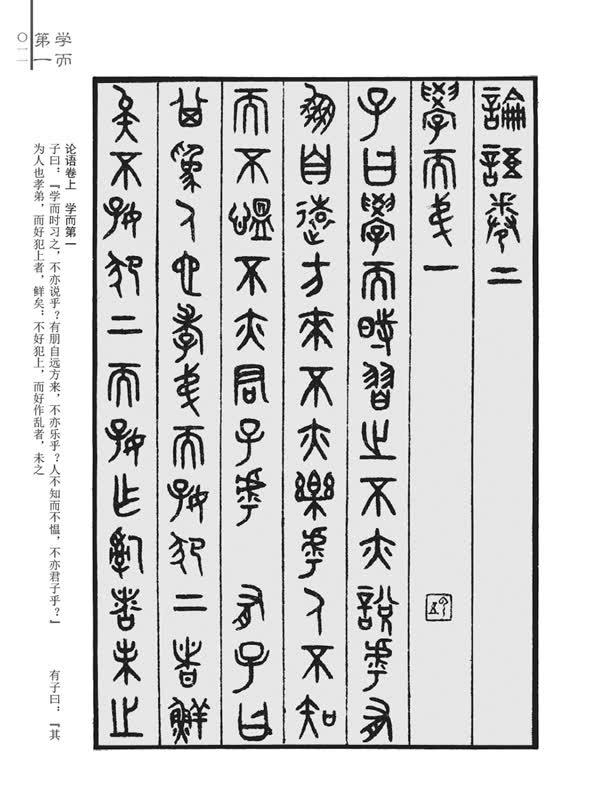 論語卷上
學而弟一
子曰學而時習之不亦說乎有
朋自遠方來不亦樂乎人不知
而不慍不亦君子乎 有子曰
其為人也孝弟而好犯上者鮮
矣不好犯上而好作亂者未之
学而
第一
〇一一
论语卷上 学而第一
子曰：『学而时习之，不亦说乎？有朋自远方来，不亦乐乎？人不知而不愠，不亦君子乎？』 有子曰：『其
为人也孝弟，而好犯上者，鲜矣；不好犯上，而好作乱者，未之